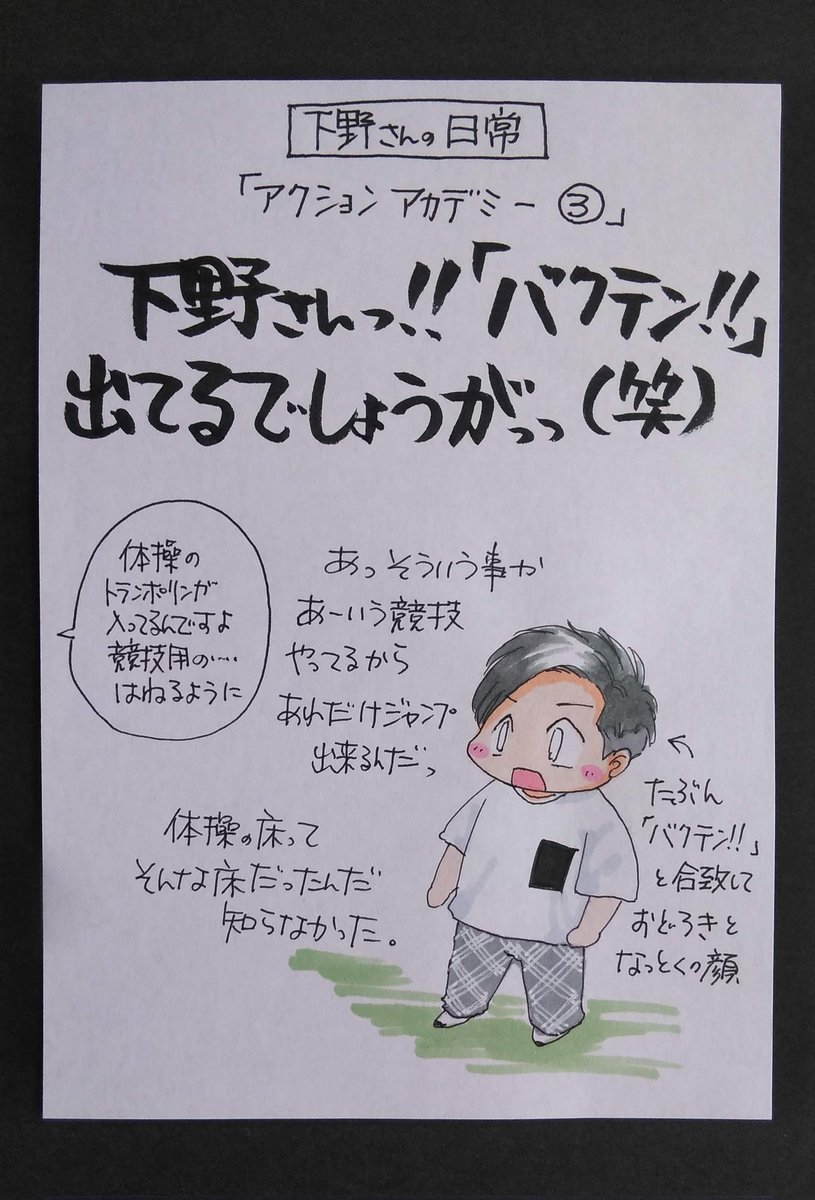 下野さんの日常
「アクション アカデミー ③」
下野さんっ!!「バクテン!!」
出てるでしょうがっっ(笑)
体操の
トランポリンが
入ってるんですよ
競技用の‥‥
はねるように
あっそういう事か
あーいう競技
やってるから
あれだけジャンプ
出来るんだっ
体操の床って
そんな床だったんだ
知らなかった。
←
たぶん
「バクテン!!」
と合致して
おどろきと
なっとくの顔